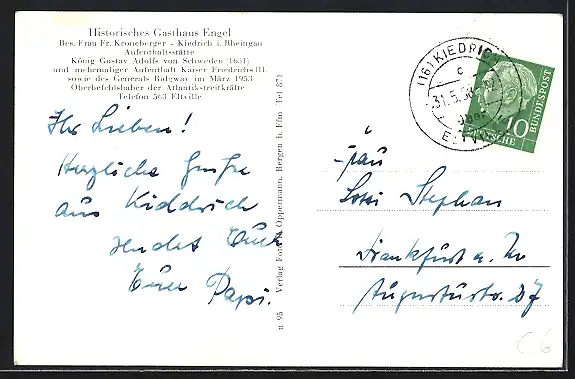 Historisches Gasthaus Engel
Bes. Frau Fr. Kroneberger - Kiedrich i. Rheingau
Aufenthaltsstätte
König Gustav Adolfs von Schweden (1631)
und mehrmaliger Aufenthalt Kaiser Friedrichs III.
sowie des Generals Ridgway im März 1953
Oberbefehlshaber der Atlantikstreitkräfte
Telefon 563 Eltville
Ihr Lieben!
Herzliche Grüße
aus Kiddrich
sendet Euch
Euer Papi.
n 95 Verlag Foto Oppermann, Bergen b. Ffm Tel 871
(16) KIEDRICH
c
31.5.58
DEUTSCHE
BUNDESPOST
10
Frau
Lossi Stephan
Frankfurt a. M
Augustusstr. 37